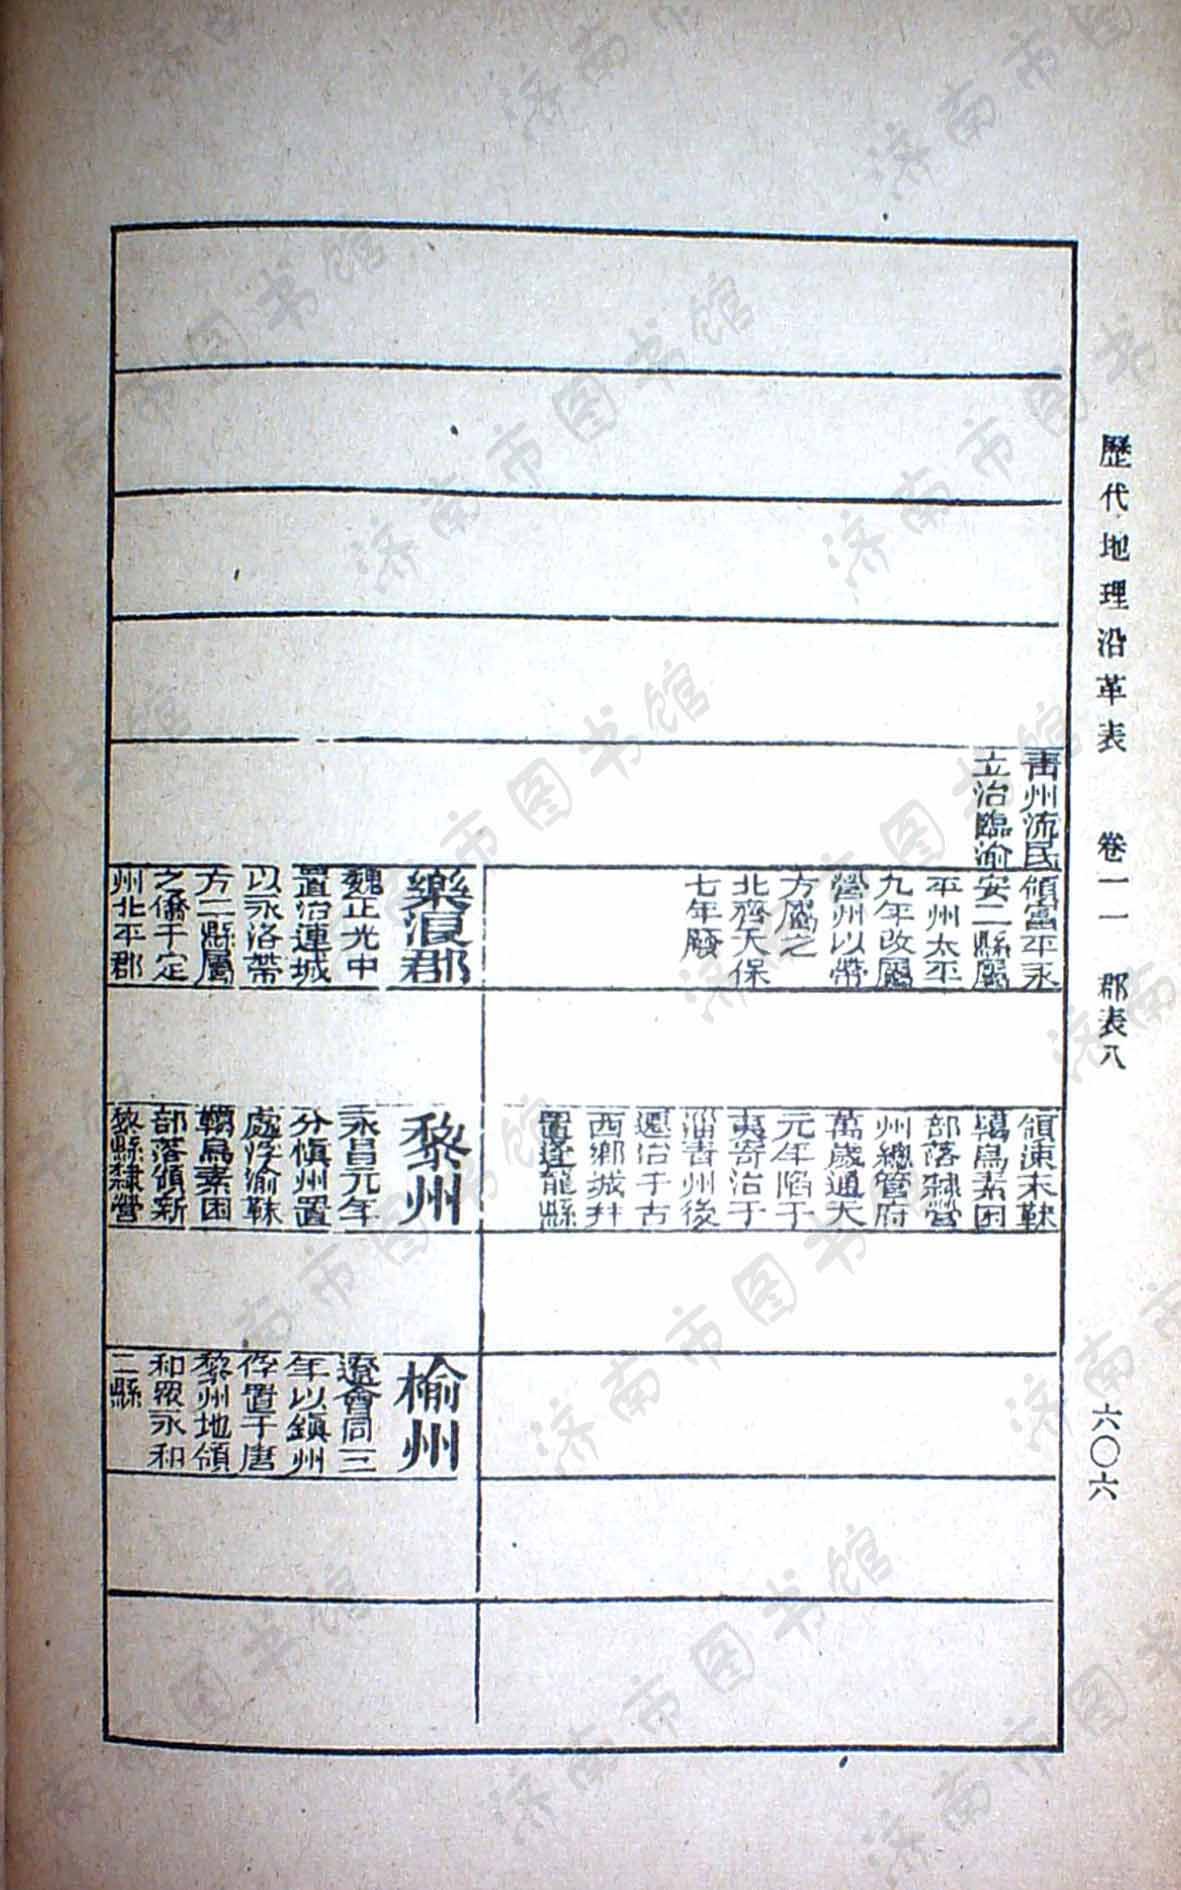 歷代地理沿革表 卷一一 郡表八 六〇六
青州流民
立治臨渝
領富平永
安二縣屬
平州太平
九年改屬
營州以帶
方屬之
北齊天保
七年廢
樂浪郡
魏正光中
置治連城
以永洛帶
方二縣屬
之僑于定
州北平郡
領涑末靺
鞨烏素固
部落隸營
州總管府
萬歲通天
元年陷于
夷寄治于
淄青州後
還治于古
西鄉城并
置逢龍縣
黎州
永昌元年
分慎州置
處浮渝靺
鞨烏素固
部落領新
黎縣隸營
榆州
遼會同三
年以鎮州
俘置于唐
黎州地領
和眾永和
二縣
济南市图书馆